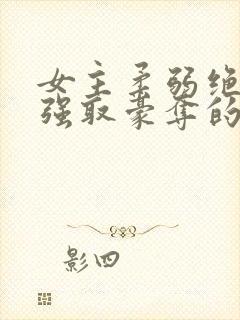 女主柔弱绝
强取豪夺的
影四